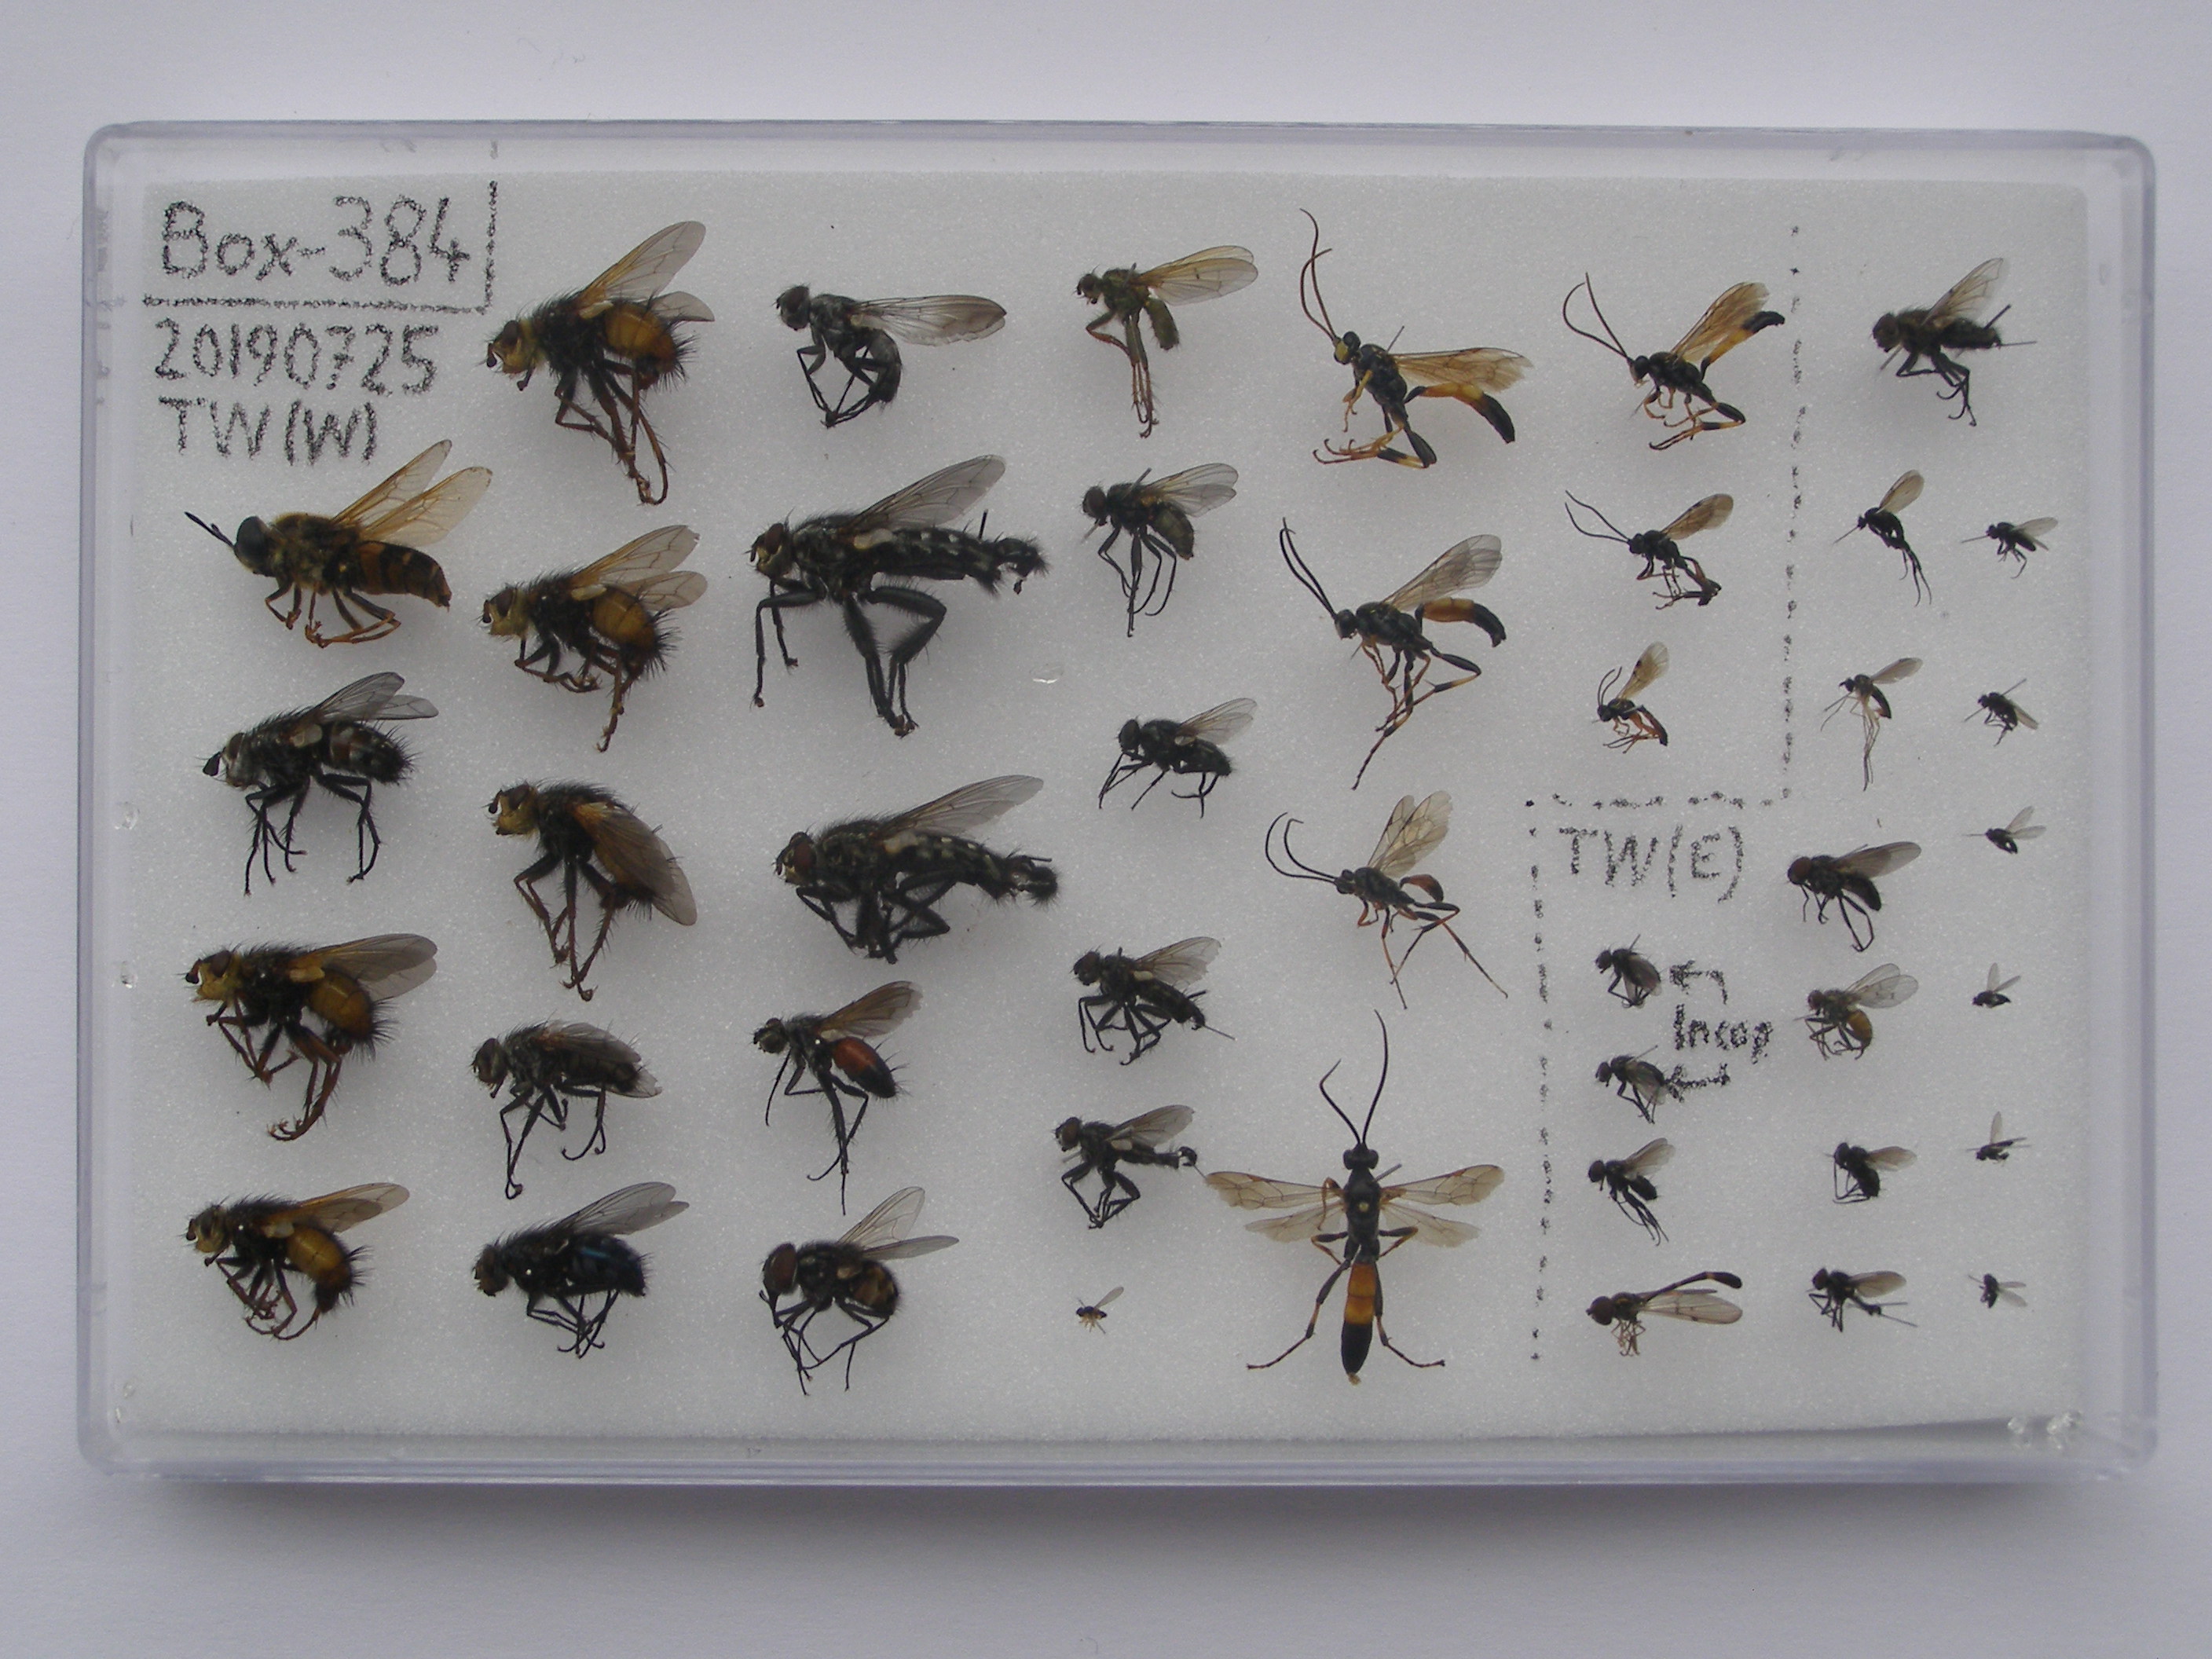 Box-384
20190725
TW(W)
TW(E)
Incop